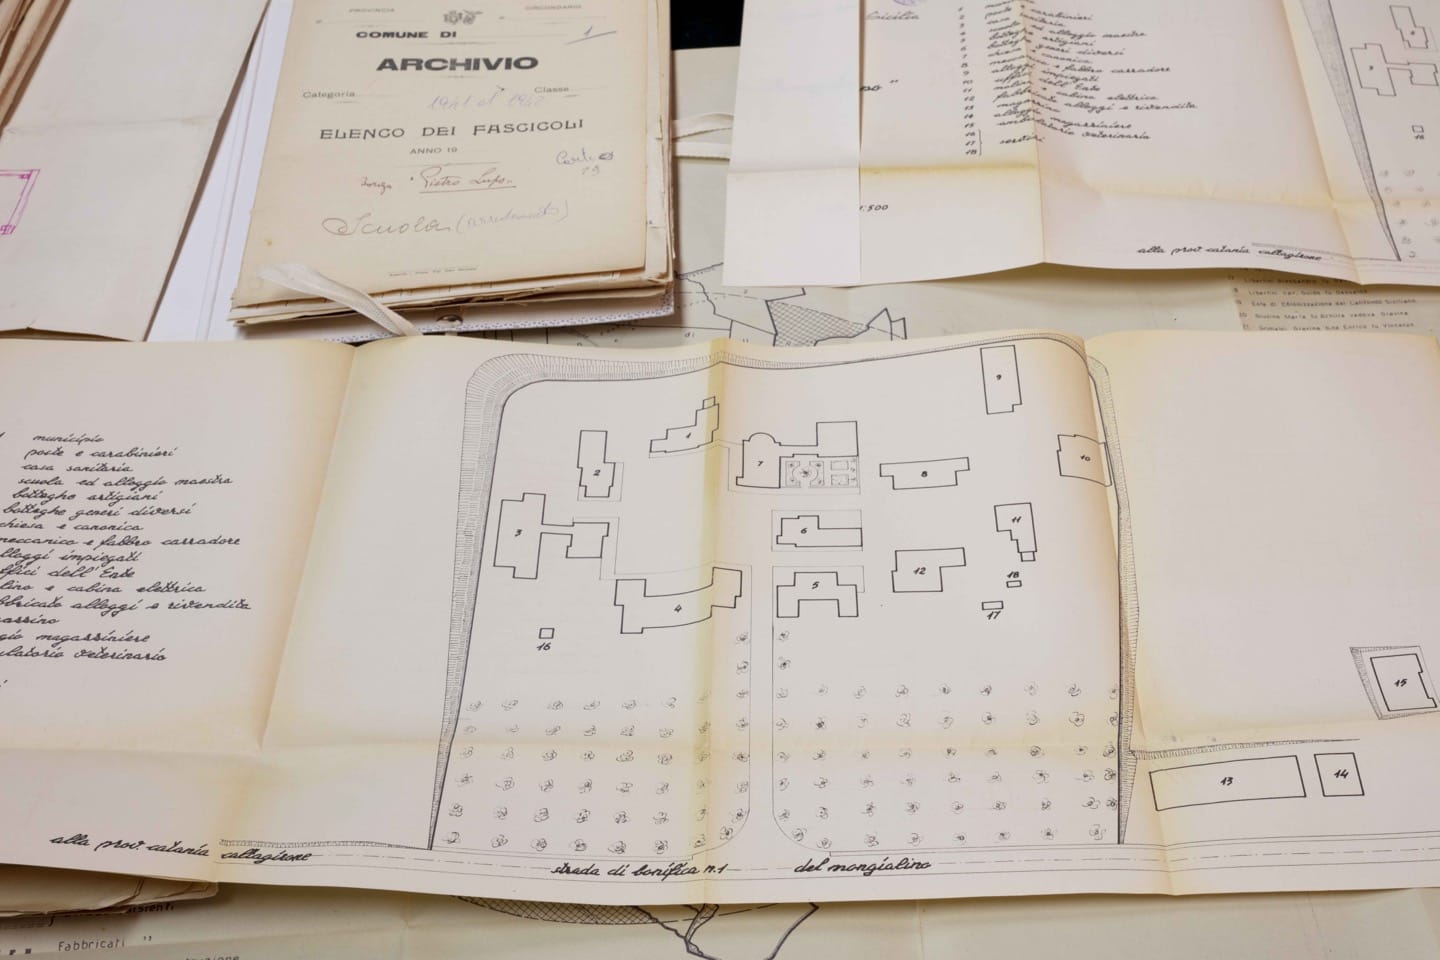 PROVINCIA
CIRCONDARIO
COMUNE DI
1
ARCHIVIO
Categoria
Classe
1941 al 1942
ELENCO DEI FASCICOLI
ANNO 19
Borgo "Pietro Lupo"
Scuola (arredamento)
Sicilia
2 poste e carabinieri
3 casa sanitaria
4 scuola ed alloggio maestra
5 botteghe artigiani
6 botteghe generi diversi
7 chiesa e canonica
8 meccanico e fabbro carradore
9 alloggi impiegati
10 uffici dell'Ente
11 molino e cabina elettrica
12 fabbricato alloggi e rivendita
13 magazzino
14 alloggio magazziniere
15 ambulatorio veterinario
16
17
18
1:500
alla prov catania caltagirone
4
3
16
Ente di Colonizzazione del Latifondo Siciliano
municipio
poste e carabinieri
casa sanitaria
scuola ed alloggio maestra
botteghe artigiani
botteghe generi diversi
chiesa e canonica
meccanico e fabbro carradore
lloggi impiegati
ffici dell'Ente
lino e cabina elettrica
bbricato alloggi e rivendita
gio magazziniere
ulatorio veterinario
1
2
3
4
5
6
7
8
9
10
11
12
13
14
15
16
17
18
alla prov catania caltagirone
strada di bonifica n.1
del mongialino
Fabbricati "